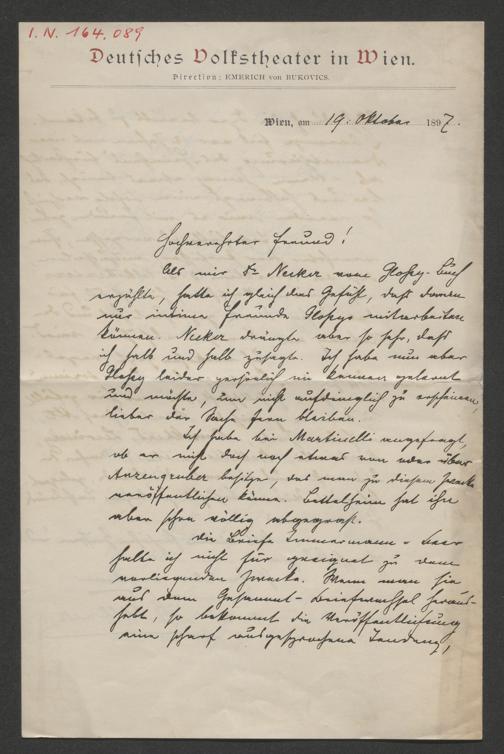 I. N. 164.089
Deutsches Volkstheater in Wien.
Direction: EMERICH von BUKOVICS.
Wien, am 19. Oktober 1897.
Hochverehrter Freund!
Als mir Dr. Necker vom Glossy-Buch
erzählte, hatte ich gleich das Gefühl, daß daran
nur intime Freunde Glossys mitarbeiten
können. Necker drängte aber so sehr, daß
ich halb und halb zusagte. Ich habe nun aber
Glossy leider persönlich nie kennen gelernt
und möchte, um nicht aufdringlich zu erscheinen,
lieber der Sache fern bleiben.
Ich habe bei Martinelli angefragt,
ob er nicht doch noch etwas von oder über
Anzengruber besitze, das man zu diesem Zwecke
veröffentlichen könne. Bettelheim hat ihn
aber schon völlig abgegrast.
Die Briefe Immermann-Beer
halte ich nicht für geeignet zu dem
vorliegenden Zwecke. Wenn man sie
aus dem Gesammt-Briefwechsel heraus-
hebt, so bekommt die Veröffentlichung
eine scharf ausgesprochene Tendenz,